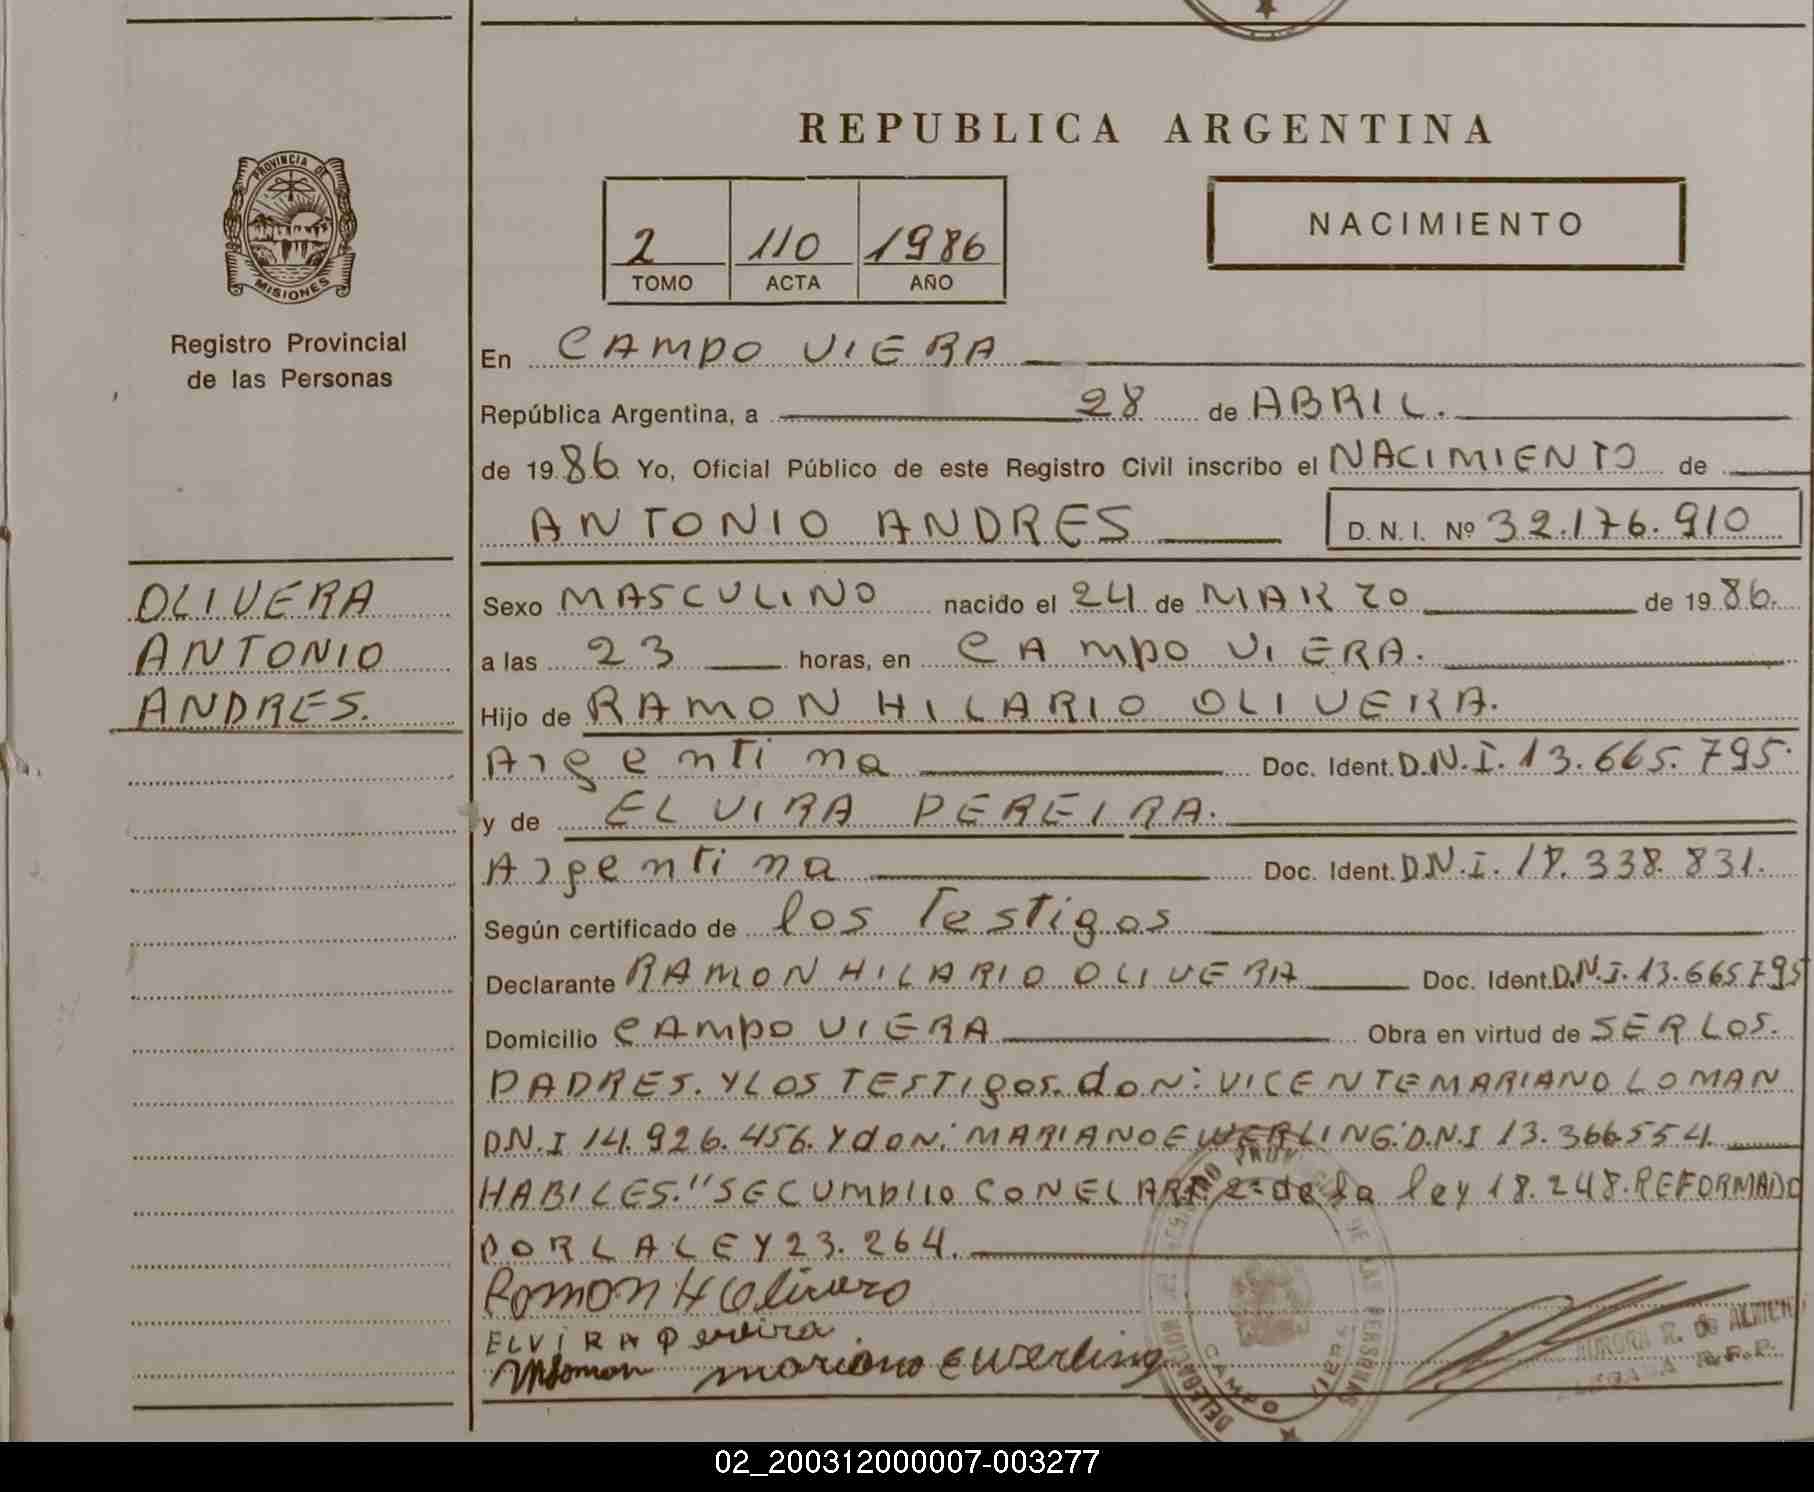 REPUBLICA ARGENTINA
PROVINCIA DE
MISIONES
Registro Provincial
de las Personas
2 110 1986
TOMO ACTA AÑO
NACIMIENTO
En CAMPO VIERA
República Argentina, a 28 de ABRIL.
de 19 86 Yo, Oficial Público de este Registro Civil inscribo el NACIMIENTO de
ANTONIO ANDRES D. N. I. Nº 32.176.910
OLIVERA
ANTONIO
ANDRES.
Sexo MASCULINO nacido el 24 de MARZO de 19 86.
a las 23 horas, en CAMPO VIERA.
Hijo de RAMON HILARIO OLIVERA.
Argentina Doc. Ident. D.N.I. 13.665.795.
y de ELVIRA PEREIRA.
Argentina Doc. Ident. D.N.I. 18.338.831.
Según certificado de los Testigos
Declarante RAMON HILARIO OLIVERA Doc. Ident. D.N.I. 13.665795
Domicilio CAMPO VIERA Obra en virtud de SER LOS.
PADRES. Y LOS TESTIGOS. don: VICENTE MARIANO LOMAN
D.N.I 14.926.456. Y don: MARIANO EWERLING. D.N.I 13.366554.
HABILES." SE CUMPLIO CON EL ART. 2º de la ley 18.248. REFORMADO
POR LA LEY 23.264.
Ramon H Olivera
ELVIRA Pereira
mariano Ewerling
DELEGACION CAMPO VIERA
DE LAS PERSONAS
AURORA R. de
02_200312000007-003277